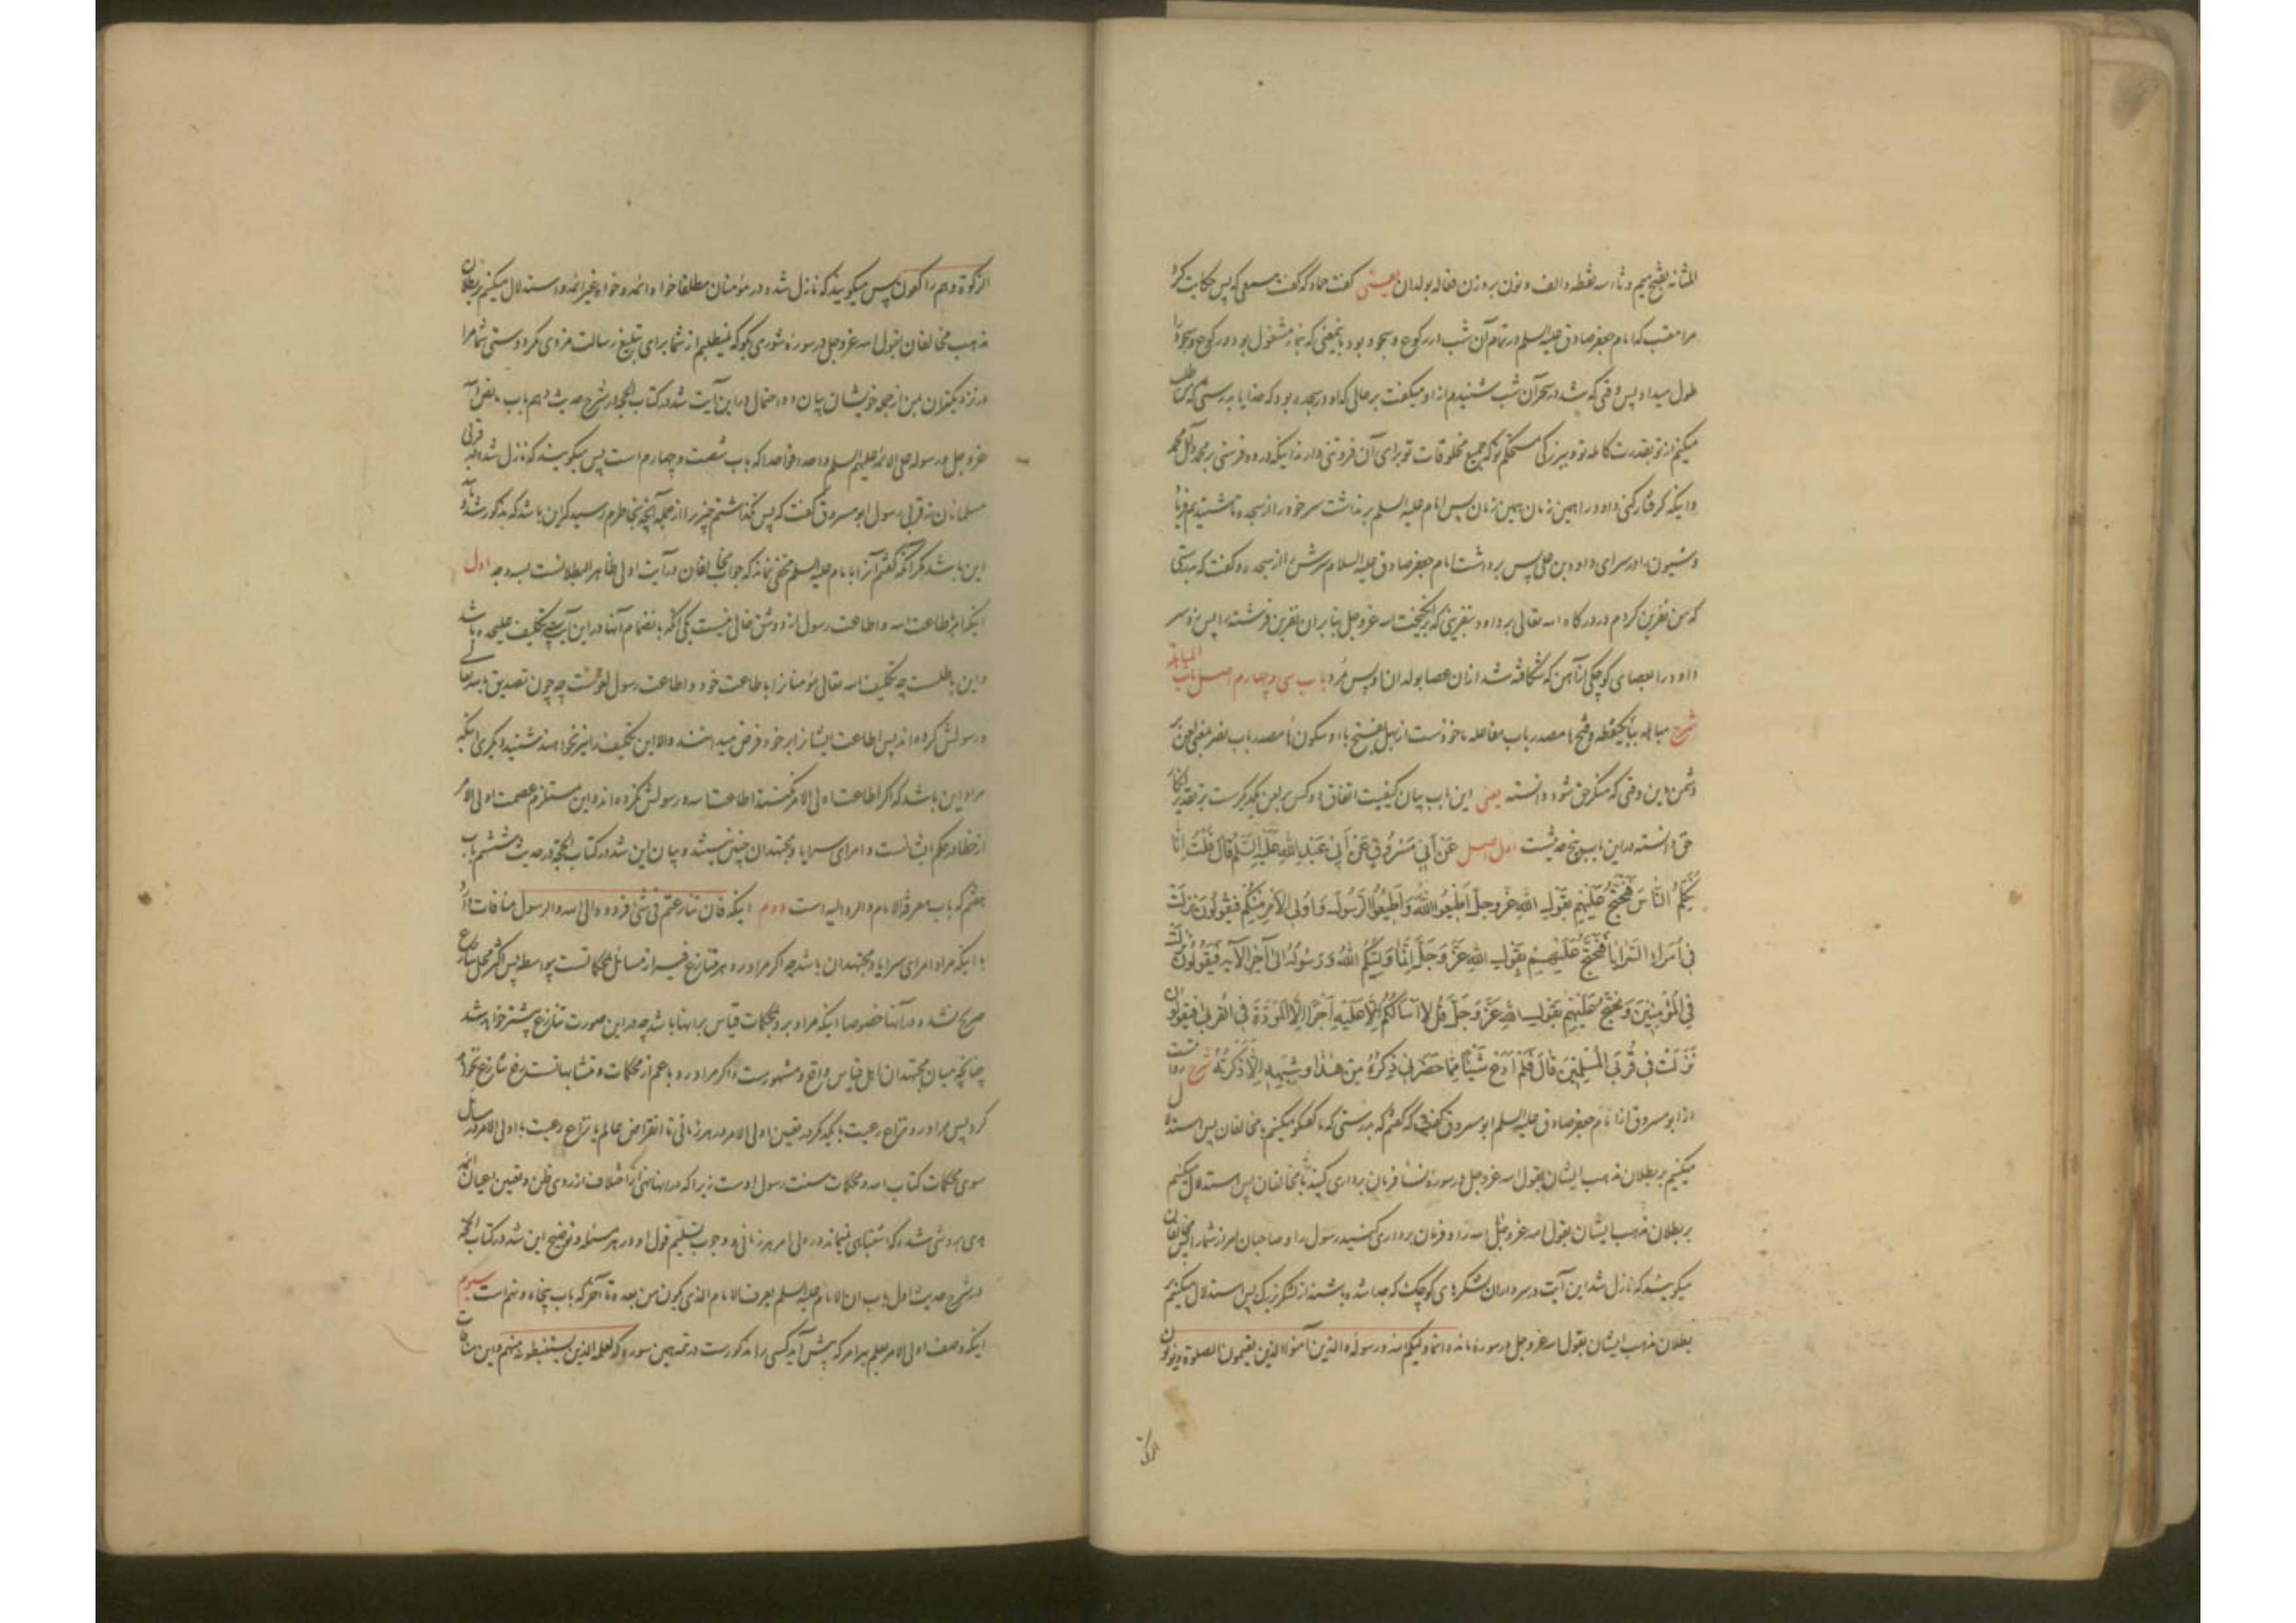 المثانه بفتح میم و ثاء سه نقطه و الف و نون بر وزن فعاله بولدان یعنی گفت حماد که گفت مسمعی که پس حکایت کرد
مرا معتب که امام جعفر صادق علیه السلم در تمام آن شب در رکوع و سجود بود باینمعنی که بنماز مشغول بود و رکوع و سجود را
طول میداد پس وقتی که شد در سحر آن شب شنیدم از او میگفت بر حالی که او در سجده بود که خدایا بدرستی که من طلب
میکنم از تو بقدرت کامله تو و ببزرگی مستحکم تو که جمیع مخلوقات تو برای آن فروتنی دارند اینکه درود فرستی بر محمد و آل محمد
و اینکه گرفتار کنی داود را همین زمان همین زمان پس امام علیه السلم برنداشت سر خود را از سجده تا شنیدیم فریاد
و شیون را در سرای داود بن علی پس برداشت امام جعفر صادق علیه السلام سرش را از سجده و گفت که بدرستی
که من نفرین کردم در درگاه الله تعالی بر داود بنفرینی که برانگیخت الله عز وجل بنا بر آن نفرین فرشته را پس زد سر
داود را بعصای کوچکی از آهن که شکافته شد از آن عصا بولدان او پس مرد باب سی و چهارم اصل باب المباهلة
شرح مباهله بباء یکنقطه و فتح ها مصدر باب مفاعله ماخوذست از بهل بفتح با و سکون ها مصدر باب نصر بمعنی لعن بر
دشمن دین وقتی که منکر حق شود دانسته یعنی این باب بیان کیفیت اتفاق دو کس بر لعن یکدیگرست بر تقدیر انکار
حق دانسته در این باب پنج حدیثست اول اصل عَنْ أَبِي مَسْرُوقٍ عَنْ أَبِي عَبْدِ اللهِ عَلَيْهِ السَّلَم قَالَ قُلْتُ إِنَّا
نُكَلِّمُ النَّاسَ فَنَحْتَجُّ عَلَيْهِمْ بِقَوْلِ اللهِ عَزَّ وَجَلَّ أَطِيعُوا اللهَ وَأَطِيعُوا الرَّسُولَ وَأُولِي الْأَمْرِ مِنْكُمْ فَيَقُولُونَ نَزَلَتْ
فِي أُمَرَاءِ السَّرَايَا فَنَحْتَجُّ عَلَيْهِمْ بِقَوْلِ اللهِ عَزَّ وَجَلَّ إِنَّمَا وَلِيُّكُمُ اللهُ وَرَسُولُهُ إِلَى آخِرِ الْآيَةِ فَيَقُولُونَ نَزَلَتْ
فِي الْمُؤْمِنِينَ وَنَحْتَجُّ عَلَيْهِمْ بِقَوْلِ اللهِ عَزَّ وَجَلَّ قُلْ لَا أَسْأَلُكُمْ عَلَيْهِ أَجْرًا إِلَّا الْمَوَدَّةَ فِي الْقُرْبَى فَيَقُولُونَ
نَزَلَتْ فِي قُرْبَى الْمُسْلِمِينَ قَالَ فَلَمْ أَدَعْ شَيْئًا مِمَّا حَضَرَنِي ذِكْرُهُ مِنْ هٰذَا وَشِبْهِهِ إِلَّا ذَكَرْتُهُ شرح روایتست
از ابو مسروق از امام جعفر صادق علیه السلم ابو مسروق گفت که گفتم که بدرستی که ما گفتگو میکنیم با مخالفان پس استدلال
میکنیم بر بطلان مذهب ایشان بقول الله عز وجل در سوره نسا فرمان برداری کنید با مخالفان پس استدلال میکنیم
بر بطلان مذهب ایشان بقول الله عز وجل الله را و فرمان برداری کنید رسول را و صاحبان امر از شما را پس مخالفان
میگویند که نازل شد این آیت در سرداران لشکرهای کوچک که جدا شده باشند از لشکر بزرگ پس استدلال میکنیم
بطلان مذهب ایشان بقول الله عز وجل در سوره مائده انما ولیکم الله و رسوله و الذین آمنوا الذین یقیمون الصلوة و یؤتون
الزکوة
الزکوة و هم راکعون پس میگویند که نازل شد در مؤمنان مطلقا خواه ائمه و خواه غیر ائمه و استدلال میکنیم بر بطلان
مذهب مخالفان بقول الله عز وجل در سوره شوری بگو که نمیطلبم از شما برای تبلیغ رسالت مزدی مگر دوستی شما مرا
در نزدیکتران بمن از جمله خویشان بیان دو احتمال در این آیت شد در کتاب الحجه در شرح حدیث دهم باب ما نص الله
عز وجل و رسوله علی الائمه علیهم السلم واحدا فواحدا که باب شصت و چهارم است پس میگویند که نازل شد در قربی
مسلمانان نه قربی رسول ابو مسروق گفت که پس نگذاشتم چیزی را از جمله آنچه بخاطرم رسید که این باشد که مذکور شد و مانند
این باشد مگر آنکه گفتم آنرا بامام علیه السلم مخفی نماند که جواب مخالفان در آیت اولی ظاهر البطلانست بسه وجه اول
اینکه امر باطاعت الله و اطاعت رسول از دو شق خالی نیست یکی آنکه بانضمام آنها در این آیت بی تکلیف علیحده باشد
و این باطلست چه تکلیف الله تعالی مؤمنانرا باطاعت خود و اطاعت رسول لغوست چه چون تصدیق بالله تعالی
و رسولش کرده اند پس اطاعت ایشانرا بر خود فرض میدانند و الا این تکلیف را نیز نخواهند شنید دیگری اینکه
مراد این باشد که اگر اطاعت اولی الامر نکنند اطاعت الله و رسولش نکرده اند و این مستلزم عصمت اولی الامر
از خطا در حکم ایشانست و امرای سرایا و مجتهدان چنین نیستند و بیان این شد در کتاب الحجه در حدیث ششم باب
هفتم که باب معرفة الامام و الرد الیه است دوم اینکه فان تنازعتم فی شیء فردوه الی الله و الرسول منافات دارد
با اینکه مراد امرای سرایا و مجتهدان باشد چه اگر مراد رد هر متنازع فیه از مسائل بمحکماتست بیواسطه پس اکثر محل تنازع
صریح نشده در آنها خصوصا اینکه مراد برد بمحکمات قیاس بر آنها باشد چه در این صورت تنازع بیشتر خواهد شد
چنانچه میان مجتهدان اهل قیاس واقع و مشهورست و اگر مراد رد باعم از محکمات و متشابهاتست رفع تنازع نخواهد
کرد پس مراد رد نزاع رعیت با یکدیگر در تعیین اولی الامر در هر زمانی تا انقراض عالم یا نزاع رعیت با اولی الامر در مسائل
سوی محکمات کتاب الله و محکمات سنت رسول اوست زیرا که در آنها نهی از اختلاف از روی ظن و تعیین اعیان ائمه
هدی بروشی شده که اشتباهی نمیماند در ولی امر هر زمانی و وجوب تسلیم قول او در هر مسئله و توضیح این شد در کتاب الحجه
در شرح حدیث اول باب ان الامام علیه السلم یعرف الامام الذی یکون من بعده تا آخر که باب پنجاه و نهم است سیوم
اینکه وصف اولی الامر بعلم بهر امر که پیش آید کسی را مذکورست در تتمه همین سوره که لعلمه الذین یستنبطونه منهم و این منافات